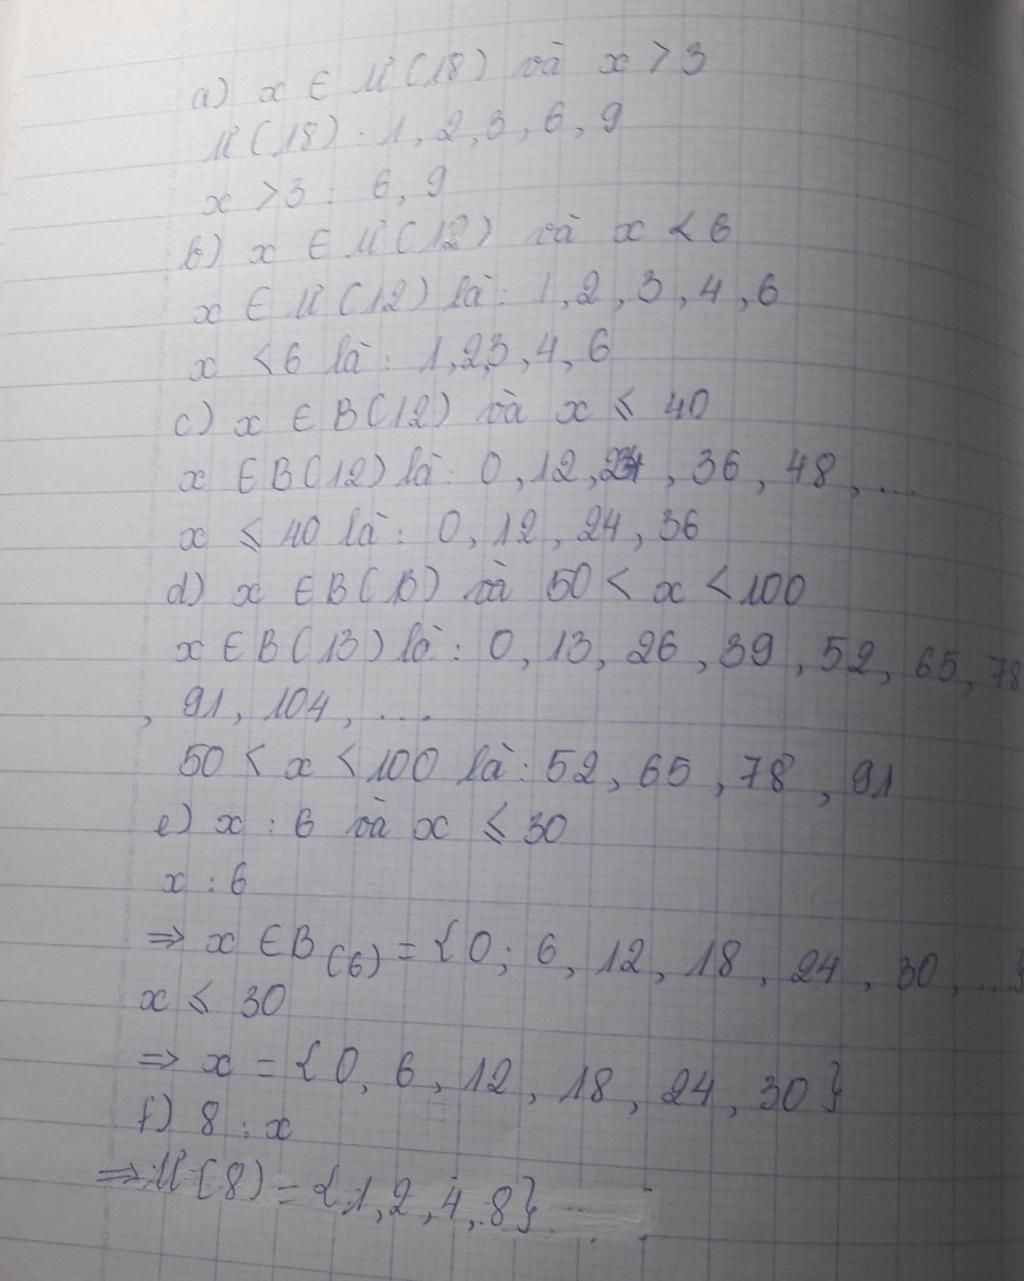 a) x ∈ Ư(18) và x > 3
Ư(18) : 1, 2, 3, 6, 9
x > 3 : 6, 9
b) x ∈ Ư(12) và x < 6
x ∈ Ư(12) là : 1, 2, 3, 4, 6
x < 6 là : 1, 2, 3, 4, 6
c) x ∈ B(12) và x ≤ 40
x ∈ B(12) là : 0, 12, 24, 36, 48, ...
x ≤ 40 là : 0, 12, 24, 36
d) x ∈ B(13) và 50 < x < 100
x ∈ B(13) là : 0, 13, 26, 39, 52, 65, 78
, 91, 104, ...
50 < x < 100 là : 52, 65, 78, 91
e) x : 6 và x ≤ 30
x : 6
⇒ x ∈ B(6) = {0; 6, 12, 18, 24, 30, ...}
x ≤ 30
⇒ x = {0, 6, 12, 18, 24, 30}
f) 8 : x
⇒ Ư(8) = {1, 2, 4, 8}